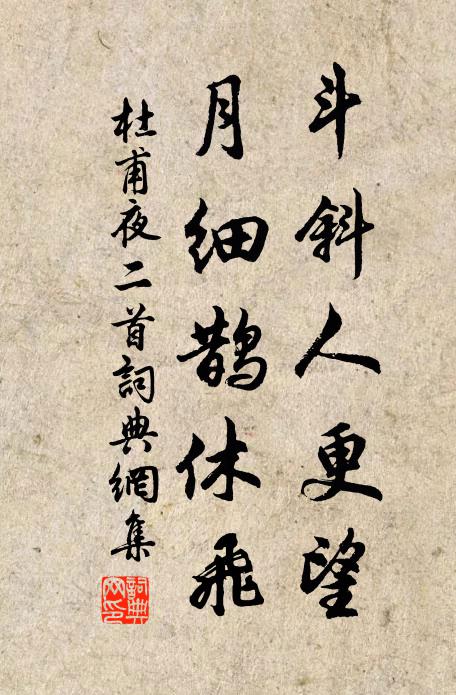 斗斜人更望
月细鹊休飛
杜甫夜二首詞典網集
詞典
网印